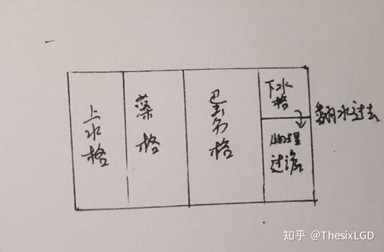 上水格
藻格
巴克氏格
下水格
物理过滤
翻水过去
知乎 @ThesixLGD